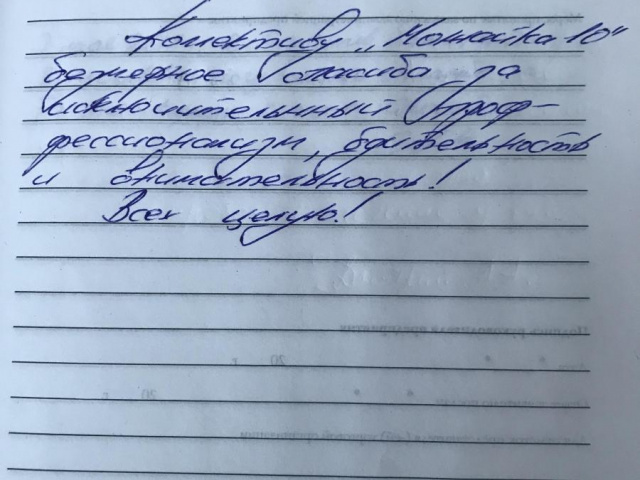 Коллективу „Монетка 10"
безмерное спасибо за
исключительнный проф-
фессионализм, бдительность
и внимательность!
Всех целую!